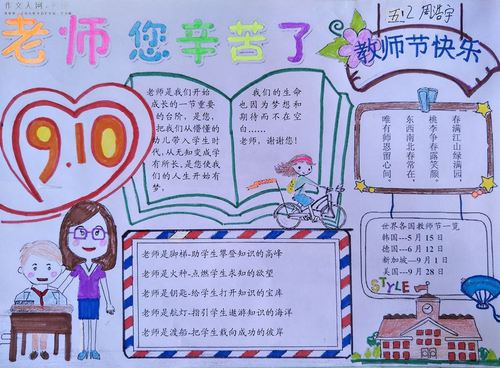 作文人网
老师 您辛苦了
五.2 周浩宇
教师节快乐
9.10
老师是我们开始
成长的一节重要
的台阶，是您，
把我们从懵懂的
幼儿带入学生时
代，从无知变成学
有所长，是您使我
们的人生开始有
梦。
我们的生命
也因为梦想和
期待而不在空
白……
老师，谢谢您！
春满江山绿满园，
桃李争春露笑颜。
东西南北春常在，
唯有师恩留心间。
世界各国教师节一览
韩国---5月15日
德国---6月12日
新加坡---9月1日
美国---9月28日
STYLE
老师是脚梯-助学生攀登知识的高峰
老师是火种-点燃学生求知的欲望
老师是钥匙-给学生打开知识的宝库
老师是航灯-指引学生遨游知识的海洋
老师是渡船-把学生载向成功的彼岸